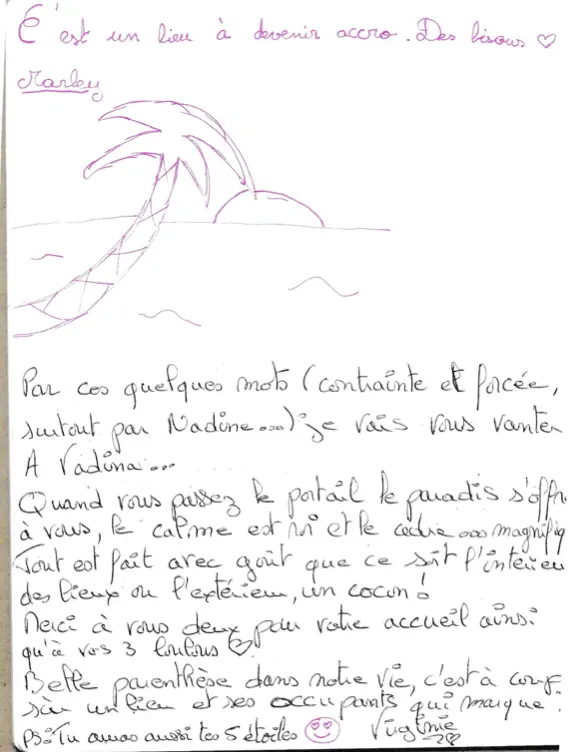 C'est un lieu à devenir accro. Des bisous ♡
Marley
Par ces quelques mots (contrainte et forcée,
surtout par Nadine...) je vais vous vanter
A Vadina...
Quand vous passez le portail le paradis s'offr
à vous, le calme est roi et le cadre ... magnifiq
Tout est fait avec goût que ce soit l'intérieu
des lieux ou l'extérieur, un cocon !
Merci à vous deux pour votre accueil ainsi
qu'à vos 3 loulous ♡.
Belle parenthèse dans notre vie, c'est à coup
sûr un lieu et ses occupants qui marque.
PS: Tu auras aussi tes 5 étoiles 😍 Virginie